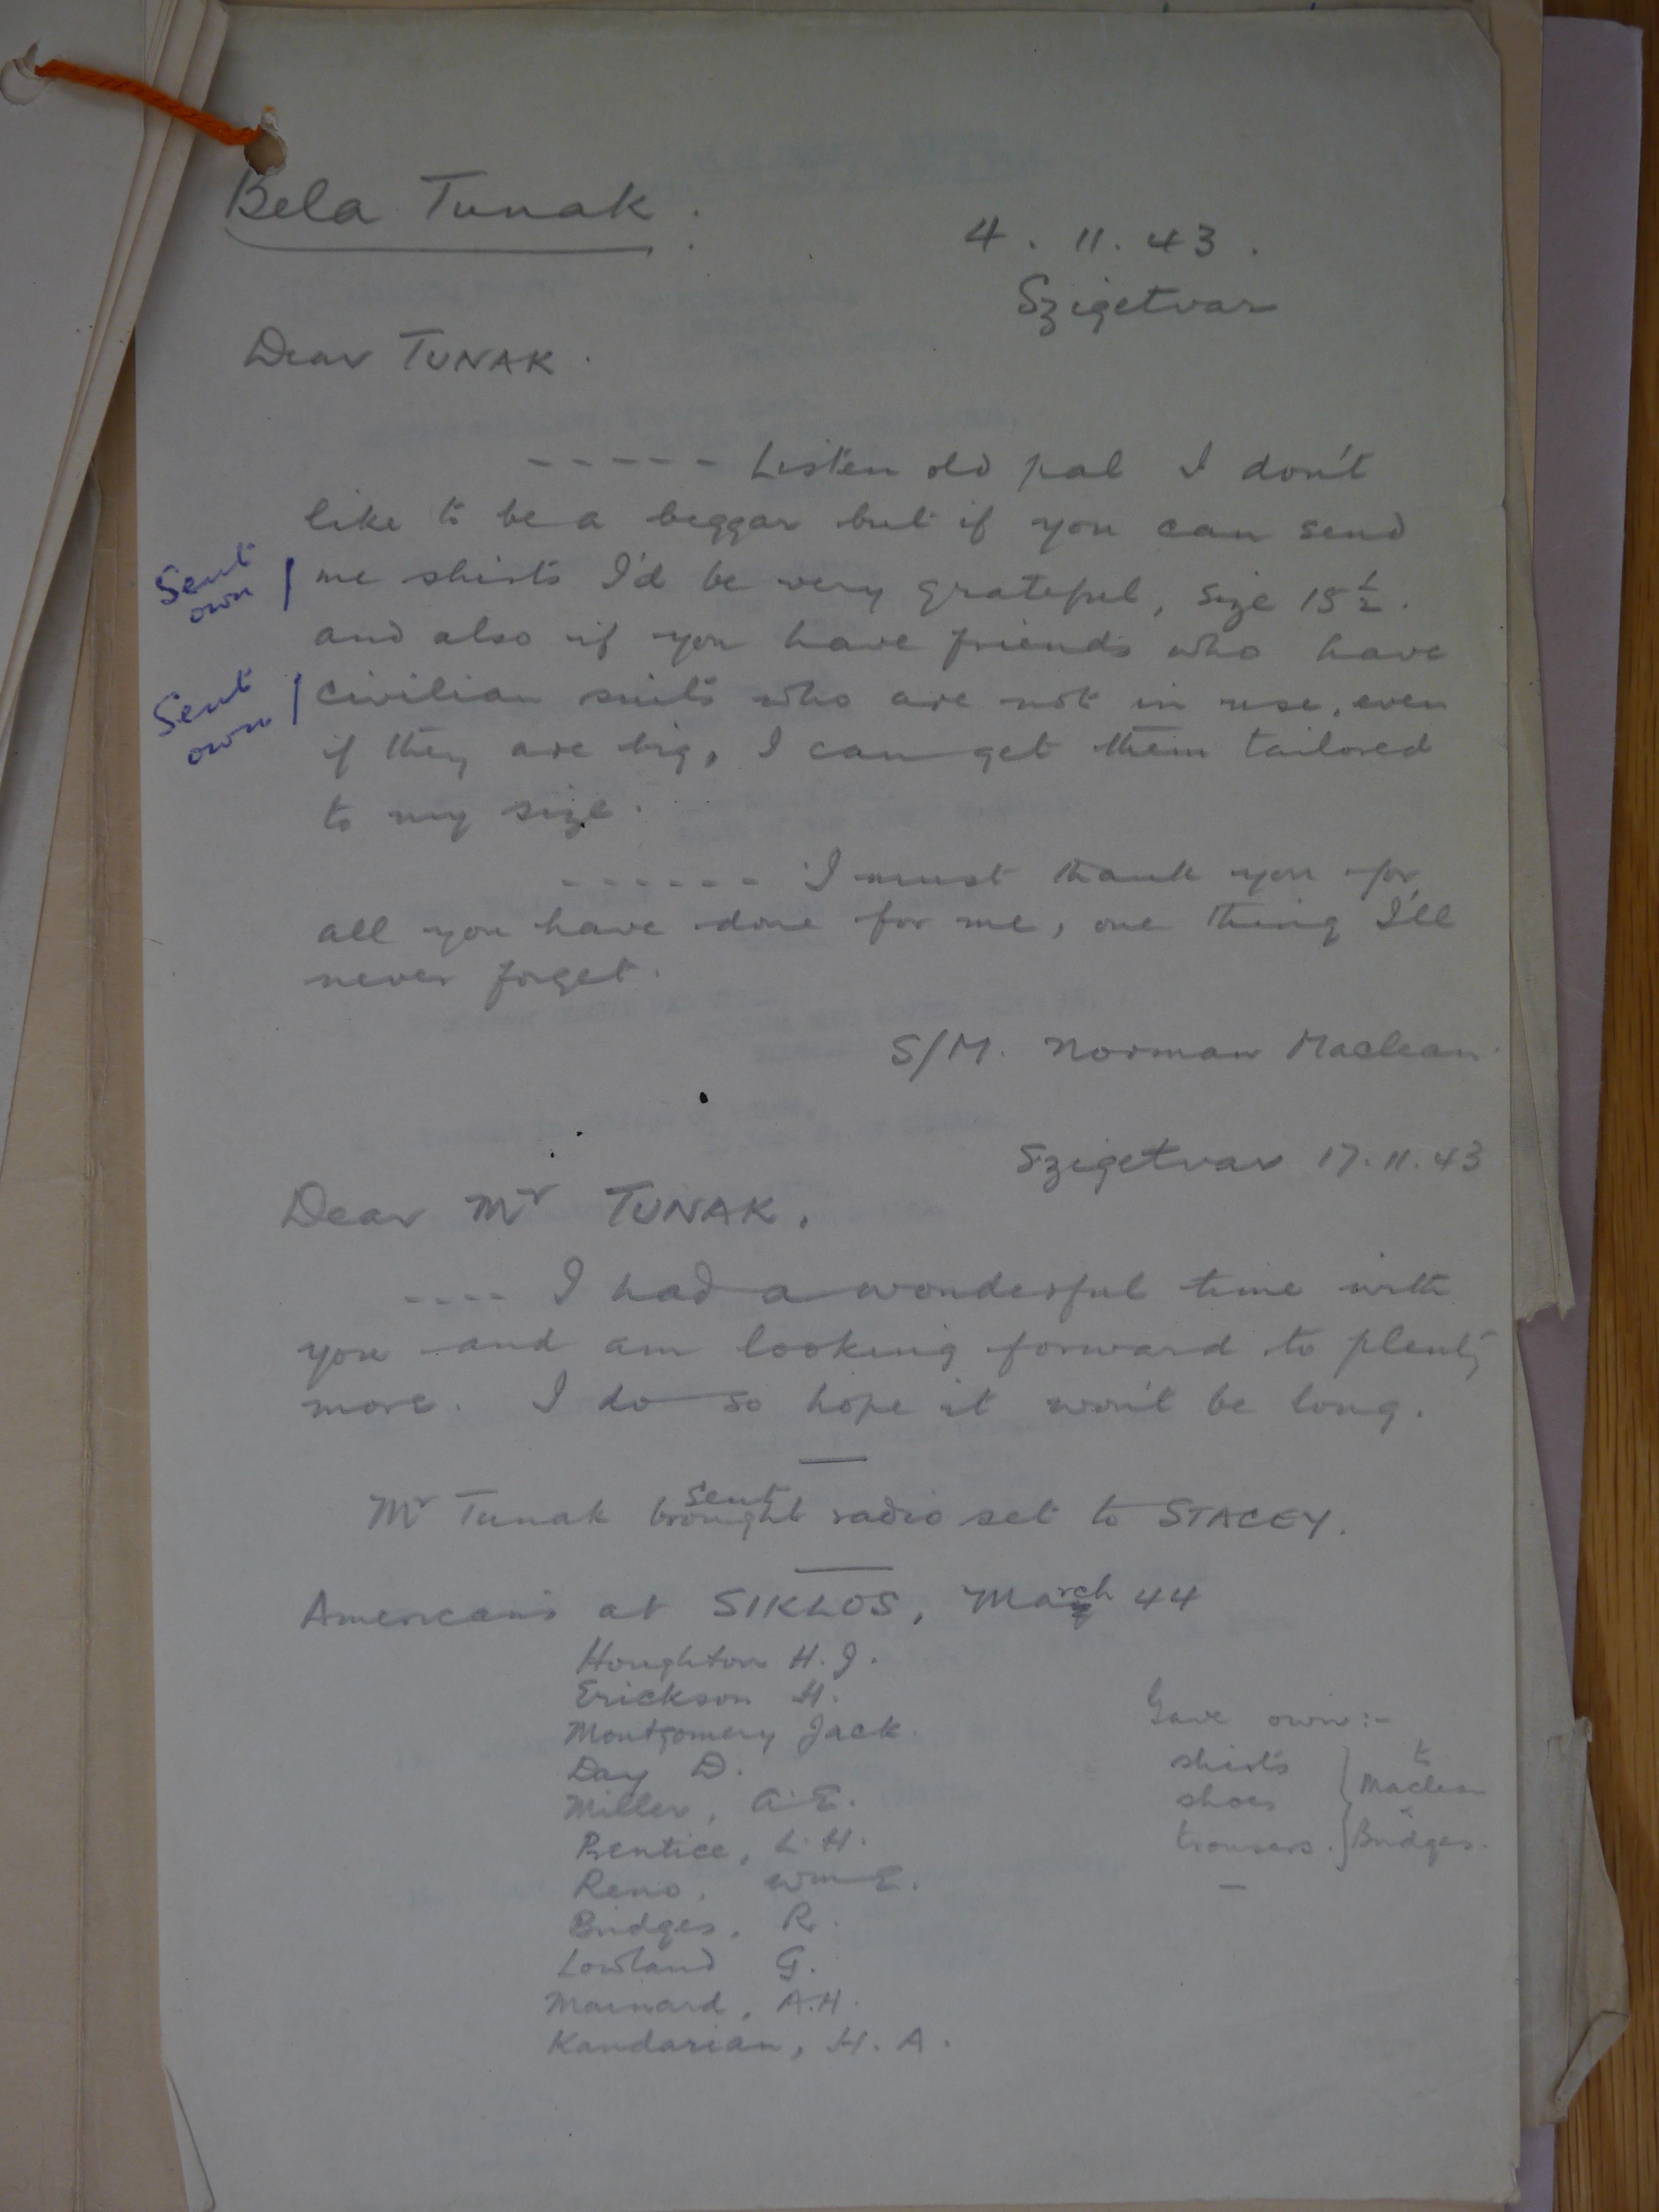 Bela Tunak.
4. 11. 43.
Szigetvar
Dear TUNAK.
----- Listen old pal I don't
like to be a beggar but if you can send
Sent own
me shirts I'd be very grateful, size 15 1/2.
and also if you have friends who have
Sent own
civilian suits who are not in use, even
if they are big, I can get them tailored
to my size.
------ I must thank you for
all you have done for me, one thing I'll
never forget.
S/M. Norman Maclean.
Szigetvar 17.11.43
Dear Mr TUNAK,
---- I had a wonderful time with
you and am looking forward to plenty
more. I do so hope it won't be long.
Sent
Mr Tunak brought radio set to STACEY.
Americans at SIKLOS, March 44
Houghton H.J.
Erickson H.
Montgomery Jack.
Day D.
Miller, A.E.
Prentice, L.H.
Reno, Wm E.
Bridges, R.
Lowland G.
Mainard, A.H.
Kandarian, H.A.
Gave own:-
shirts
shoes
trousers.
to
Maclean
Bridges.